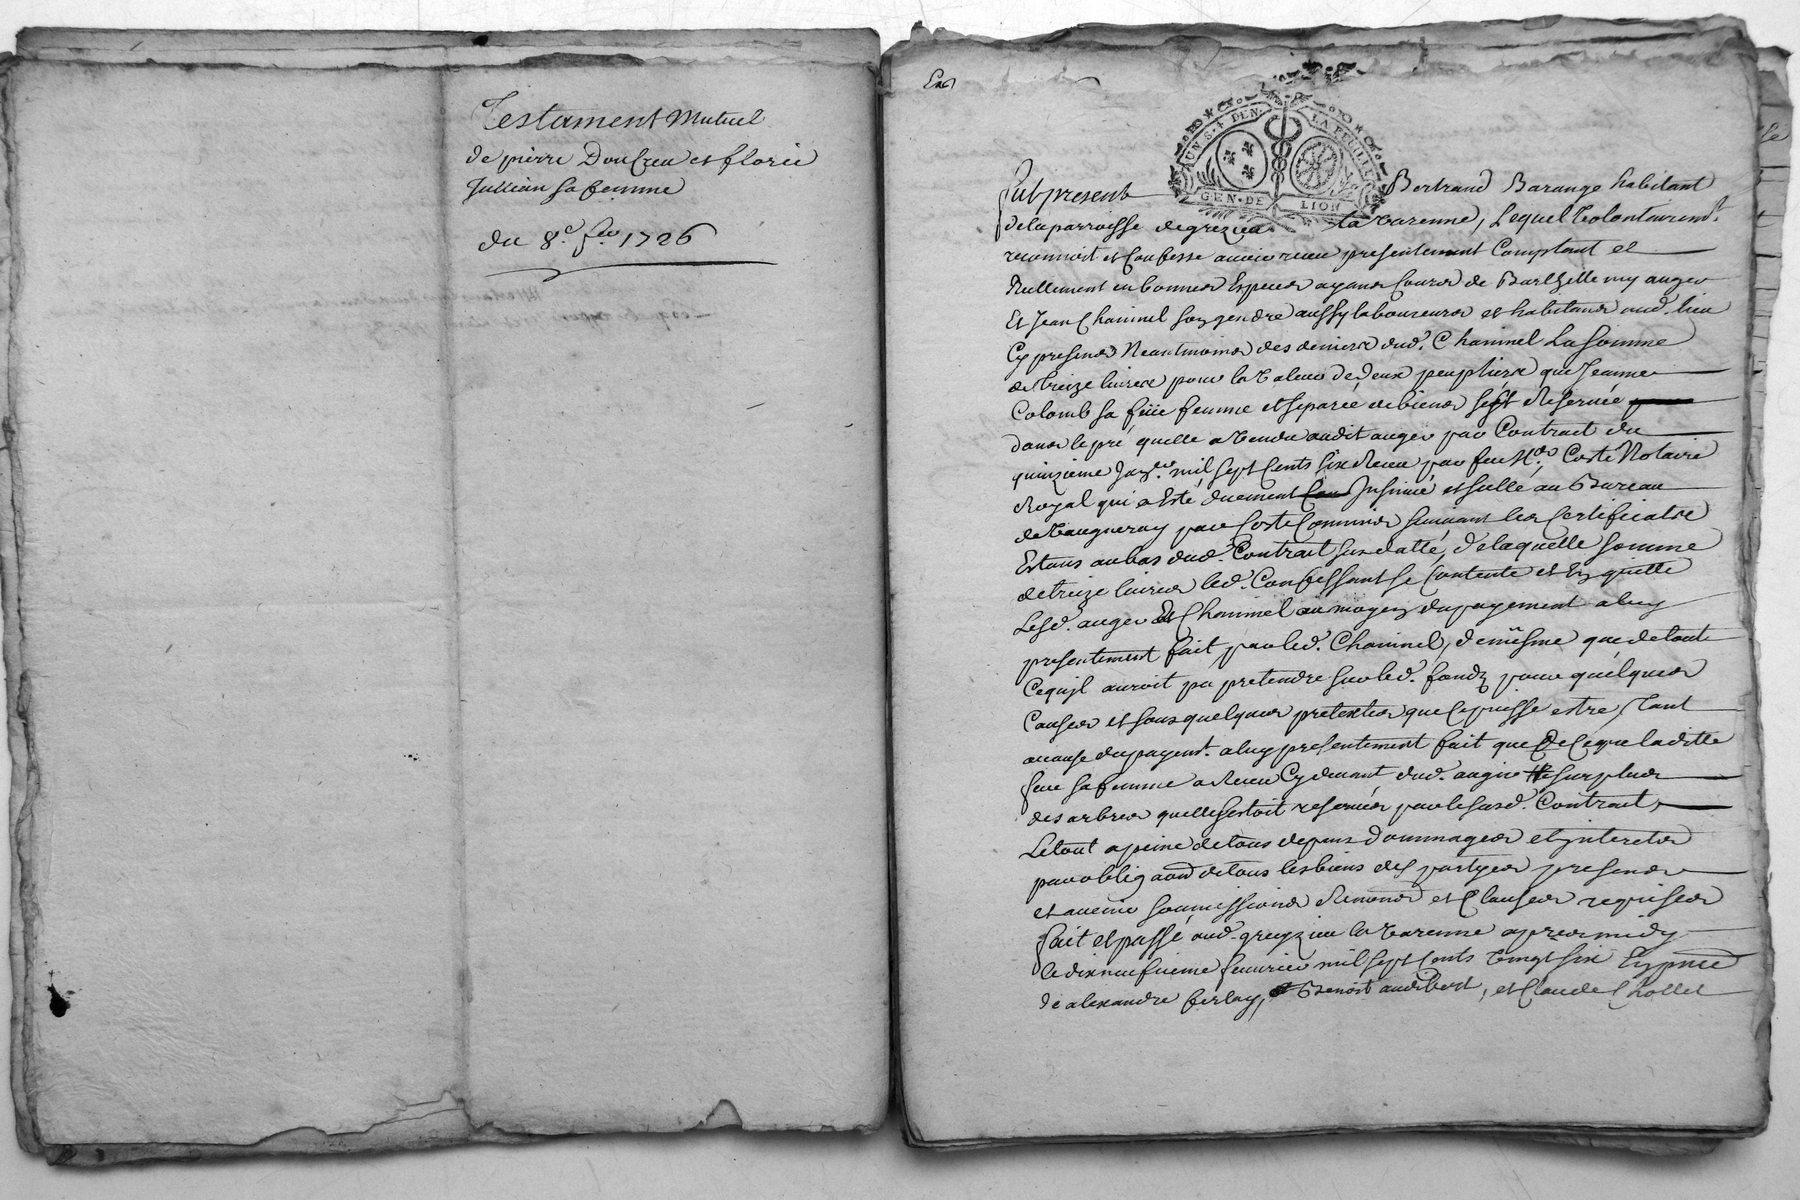 Testament Mutuel
de pierre Doncieu et florie
Jullien sa femme
du 8.e feu 1726
Exd
UN S. 4 DEN. LA FEUILLE
GEN. DE LION
fut present Bertrand Barange habitant
de la parroisse de grezieu la Varenne, Lequel volontairemt.
reconnoit et Confesse avoir receu presentement Comptant et
Reellement en bonnes Especes ayans Cours de Barthellemy auger
Et Jean Chaminel son gendre aussy laboureurs et habitans aud. lieu
Cy presens Neantmoins des deniers dud. Chaminel La somme
de treize livres pour la valeur de deux peupliers que Jeanne
Colomb sa feüe femme et separée de biens s'est Reservée
dans le pré quelle a vendu audit auger par Contract du
quinzieme Janer. mil sept Cents six Receu par feu Me. Coste Notaire
Royal qui a esté duement Insinué et sellé au Bureau
de Vaugneray par Coste Commis suivant les Certificatre
Estans au bas dud. Contract susdatté, de laquelle somme
de treize livres led. Confessant se Contente et En quitte
Lesd. auger Et Chaminel au moyen du payement a luy
presentement fait par led. Chaminel, de mësme que de tout
Ce quil auroit pu pretendre sur led. fondz pour quelques
Causes et sous quelques pretextes que Ce puisse estre, Tant
a cause du payemt. a luy presentement fait que de Ce que laditte
feue sa femme a Receu Cy devant dud. auger le surplus
des arbres quelle sestoit reservées par le susd. Contract,
Le tout a peine de tous depens dommages et interets
par obligaon de tous les biens des partyes presens
et avenir soumissions Renons et Clauses requises
fait et passé aud. grezieu la Varenne apres midy
le dix neufvieme feuvrier mil sept Cents vingt six En pnce
de alexandre ferlay, Benoist audibert, et Claude Chollet